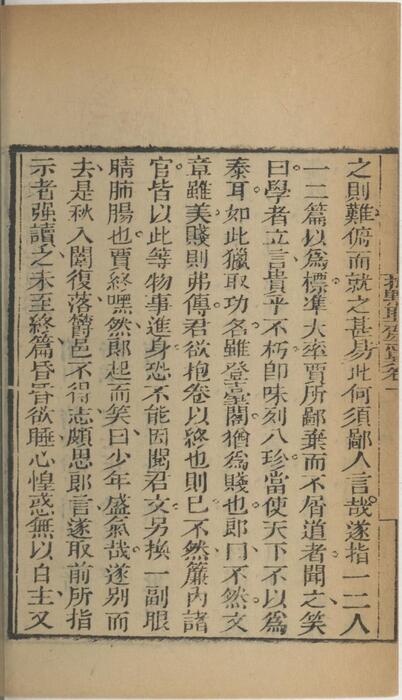 之則難俯而就之甚易此何須鄙人言哉遂指一二人
一二篇以爲標準大率賈所鄙棄而不屑道者聞之笑
曰學者立言貴乎不朽卽味列八珍當使天下不以爲
泰耳如此獵取功名雖登臺閣猶爲賤也郎曰不然文
章雖美賤則弗傳君欲抱卷以終也則已不然簾內諸
官皆以此等物事進身恐不能因閱君文另換一副眼
睛肺腸也賈終嘿然郎起而笑曰少年盛氣哉遂別而
去是秋入闈復落鬱邑不得志頗思郎言遂取前所指
示者强讀之未至終篇昏昏欲睡心惶惑無以自主又